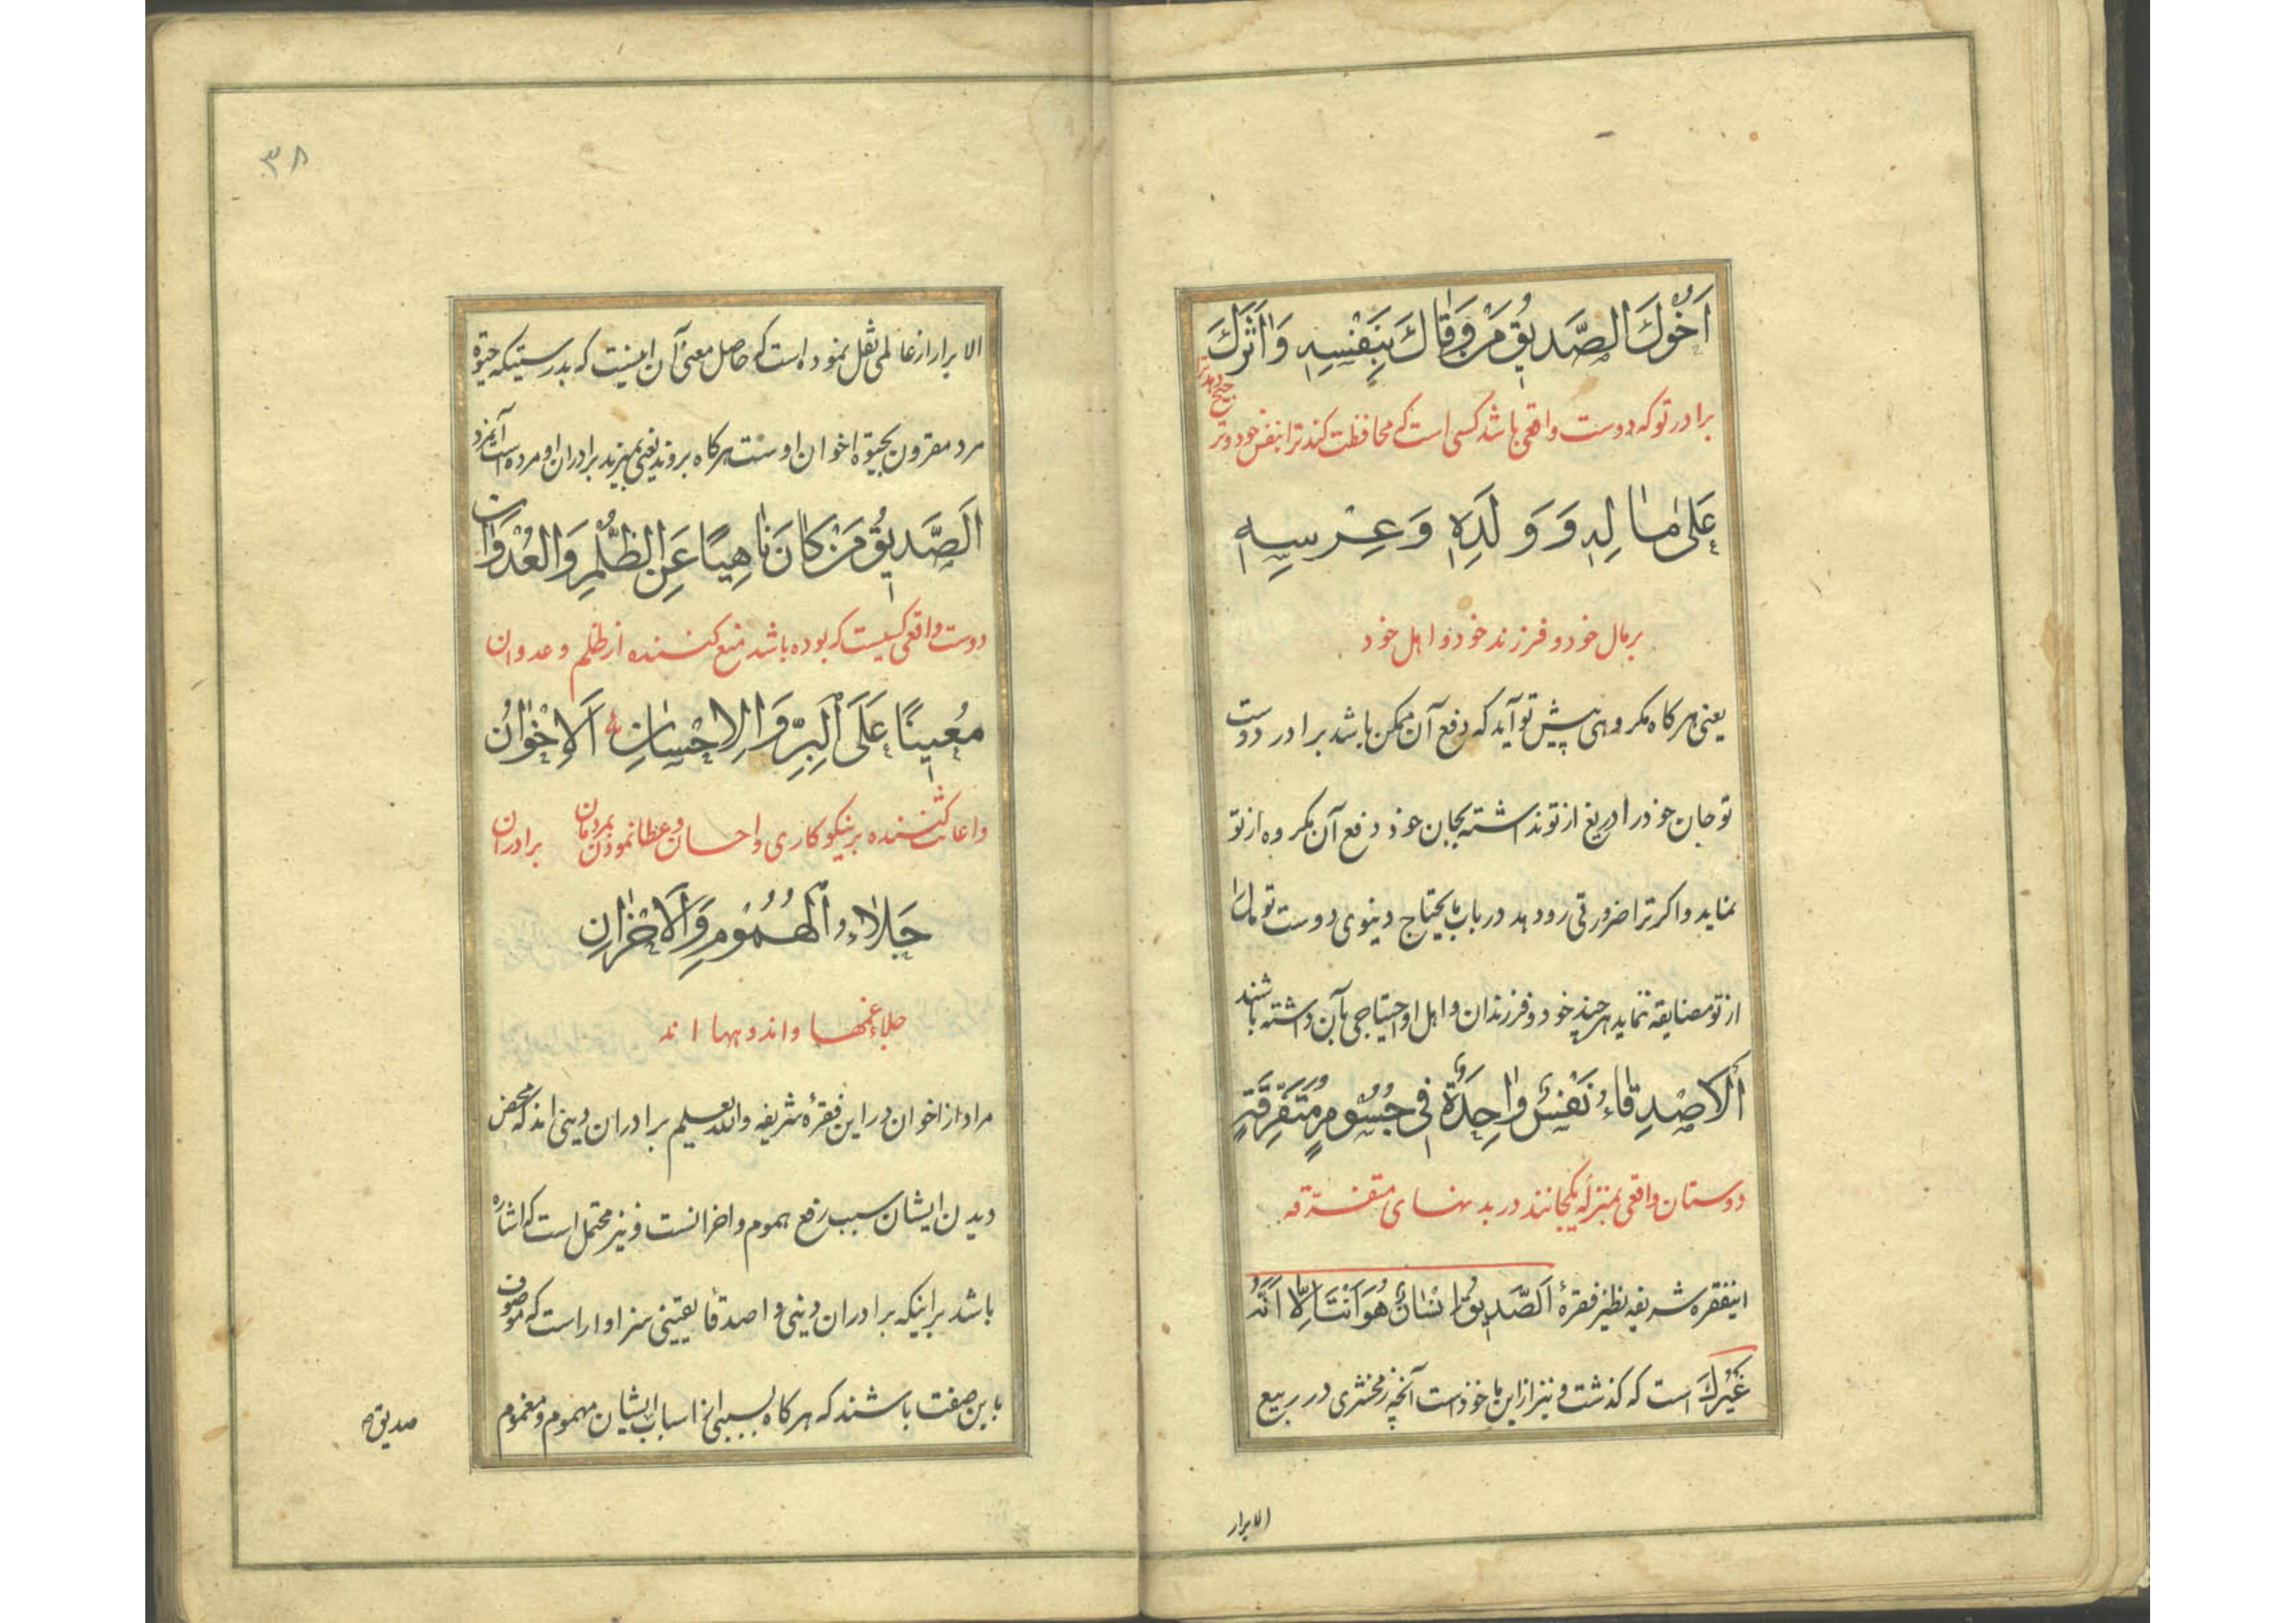 اَخُوكَ الصَّدِيقُ مَنْ وَقَاكَ بِنَفْسِهِ وَاٰثَرَكَ
برادر تو که دوست واقعی باشد کسی است که محافظت کند ترا بنفس خود و ترجیح دهد ترا
عَلىٰ مٰالِهِ وَ وَلَدِهِ وَ عِرْسِهِ
بر مال خود و فرزند خود و اهل خود
یعنی هر کاه مکروهی پیش تو آید که دفع آن ممکن باشد برادر دوست
تو جان خود را دریغ از تو نداشته بجان خود دفع آن مکروه از تو
نماید و اکر ترا ضرورتی رو دهد در باب مایحتاج دینوی دوست تو مال را
از تو مضایقه ننماید هر چند خود و فرزندان و اهل او احتیاجی بآن داشته باشند
اَلْاَصْدِقٰاءُ نَفْسٌ وٰاحِدَةٌ فِي جُسُومٍ مُتَفَرِّقَةٍ
دوستان واقعی بمنزلهٔ یکجانند در بدنهای متفرّقه
اینفقره شریفه نظیر فقرهٔ اَلصَّدِيقُ اِنْسٰانٌ هُوَ اَنْتَ اِلّٰا اَنَّهُ
غَيْرُكَ است که کذشت و نیز از این ماخوذست آنچه زمخشری در ربیع
الابرار
٣٨
الابرار از عالمی نقل نموده است که حاصل معنی آن اینست که بدرستیکه حیٰوة
مرد مقرون بحیوة اخوان اوست هر کاه بروند یعنی بمیرند برادران او مرده است آنمرد
اَلصَّدِيقُ مَنْ كٰانَ نٰاهِيًا عَنِ الظُّلْمِ وَالْعُدْوٰانِ
دوست واقعی کسیست که بوده باشد منع کننده از ظلم و عدوان
مُعِينًا عَلَى الْبِرِّ وَالْاِحْسٰانِ اَلْاِخْوٰانُ
و اعانت کننده بر نیکوکاری و احسان و عطا نمودن بمردمان برادران
جَلاٰءُ الْهُمُومِ وَالْاَحْزٰانِ
جلاء غمها و اندوهها اند
مراد از اخوان در این فقرهٔ شریفه والله یعلم برادران دینی اند که محض
دیدن ایشان سبب رفع هموم و احزانست و نیز محتمل است که اشاره
باشد بر اینکه برادران دینی و اصدقاٴ یقینی سزاوار است که موصوف
باین صفت باشند که هر کاه بسببی از اسباب ایشان مهموم و مغموم
صدیق